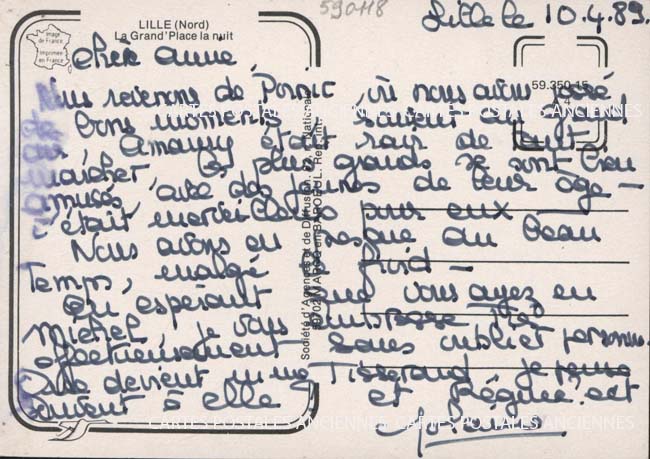 590118
Lille le 10.4.89.
LILLE (Nord)
La Grand'Place la nuit
Image de France
Imprimée en France
59.350.15
Chère Anne,
Nous revenons de Pornic où nous avons passé
bons moments souvent
Amaury était ravi de tout
les plus grands se sont bien
amusés avec des jeunes de leur âge -
c'était merveilleux pour eux
Nous avons eu presque du beau
Temps, malgré le froid -
En espérant que vous ayez eu
Michel, je vous embrasse très
affectueusement sans oublier personne.
Que devient Mme Tisserand, je pense
souvent à elle et
Société d'Agences et de Diffusion
CARTES POSTALES ANCIENNES
CARTES POSTALES ANCIENNES